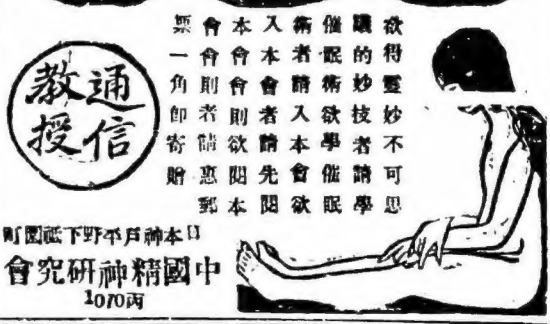 欲得靈妙不可思
議的妙技者請學
催眠術欲學催眠
術者請入本會欲
入本會者請先閱
本會會則欲閱本
會會則者請惠郵
票一角卽寄贈
通信
教授
日本神戶平野下祗園町
中國精神研究會
1070丙